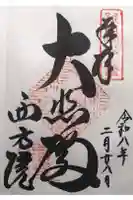 奉拝
令和八年
二月廿八日
大悲殿
西方院